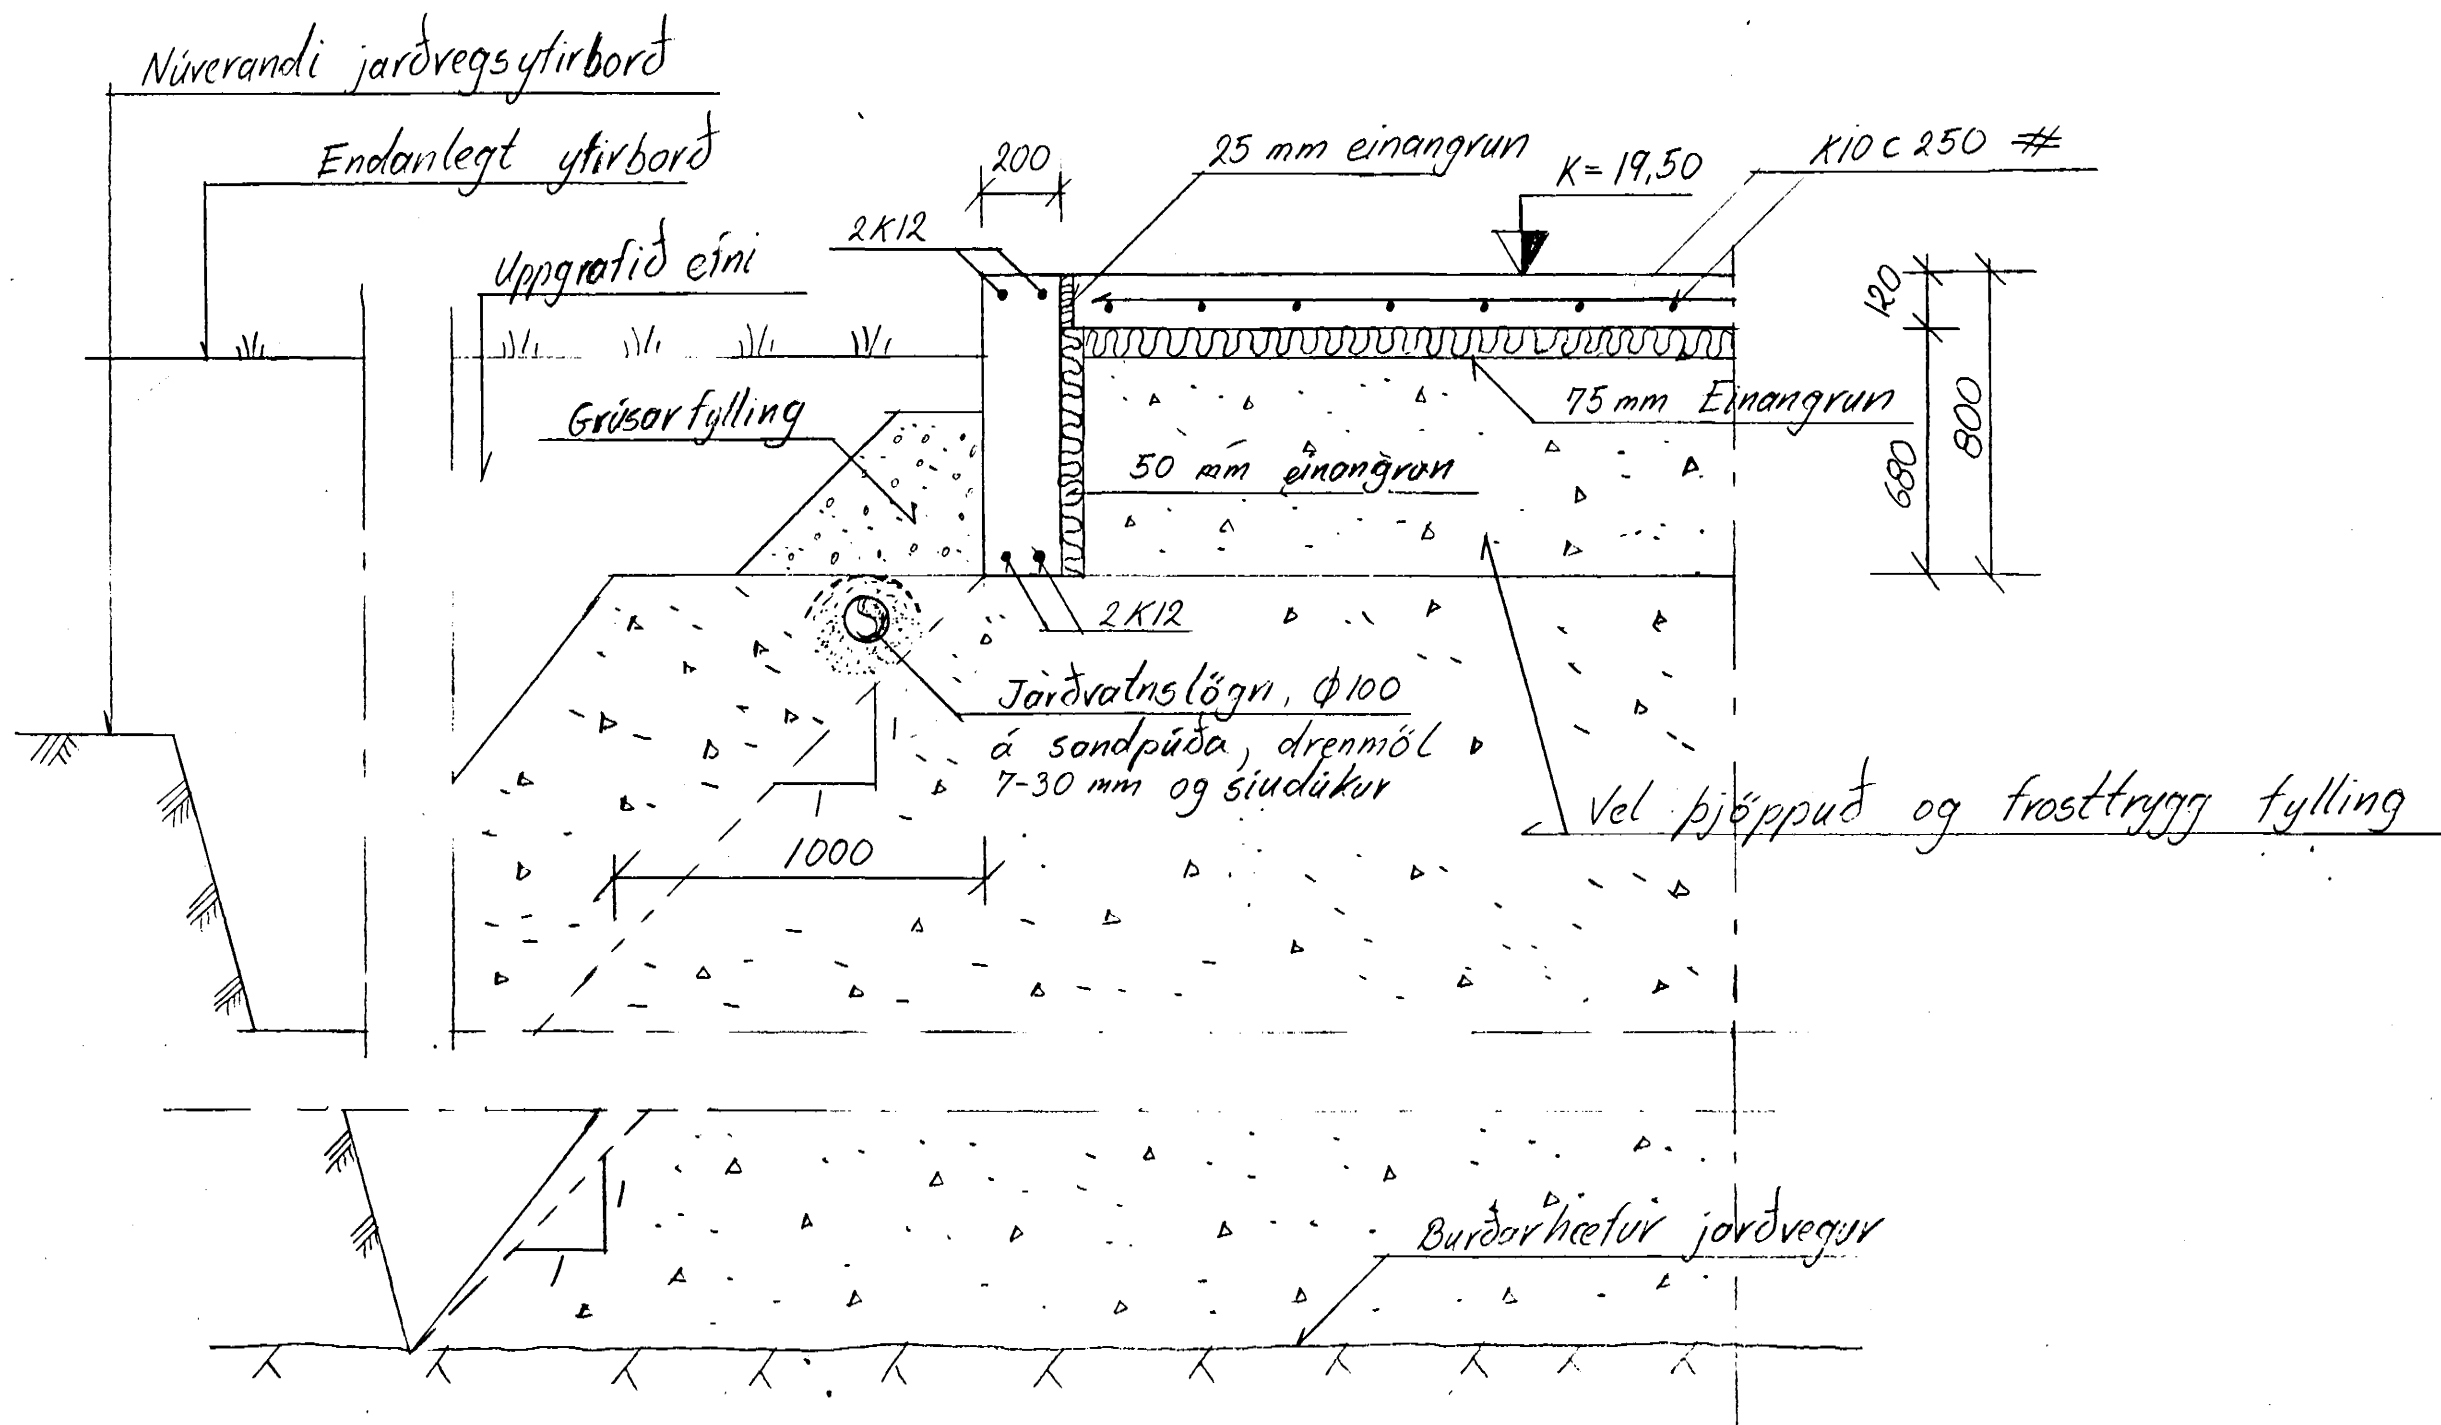 Núverandi jarðvegsyfirborð
Endanlegt yfirborð
Uppgrafið efni
200
25 mm einangrun
K= 19,50
K10 C 250 #
2K12
120
Grúsarfylling
75 mm Einangrun
50 mm einangrun
680
800
2K12
Jarðvatnslögn, Ø100
á sandpúða, drenmöl
7-30 mm og síudúkur
1
1
1000
Vel þjöppuð og frosttrygg fylling
1
1
Burðarhæfur jarðvegur